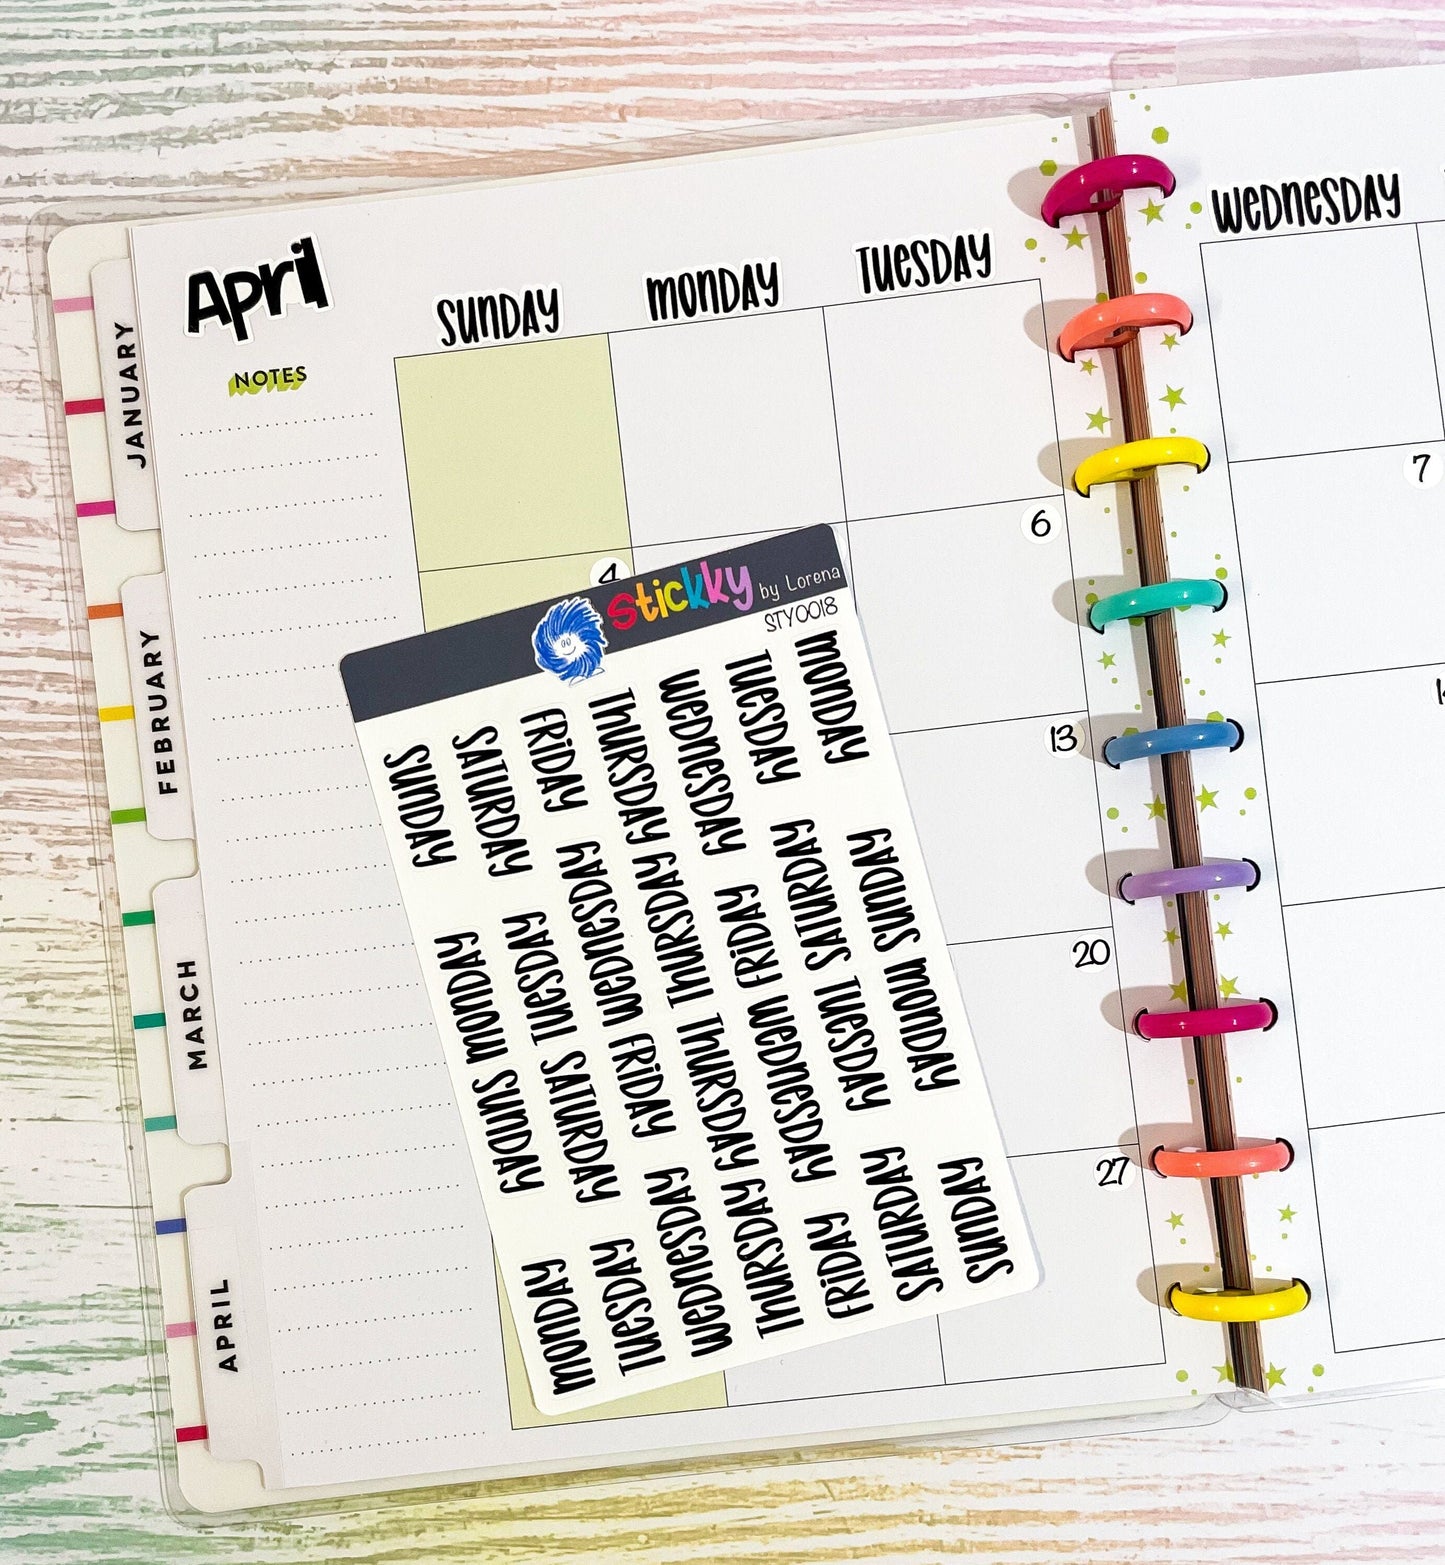 April
NOTES
SUNDAY
MONDAY
TUESDAY
WEDNESDAY
JANUARY
FEBRUARY
MARCH
APRIL
4
6
7
13
20
27
stickky by Lorena
STY0018
SUNDAY MONDAY SUNDAY MONDAY
SATURDAY TUESDAY SATURDAY TUESDAY
FRIDAY WEDNESDAY FRIDAY WEDNESDAY
THURSDAY THURSDAY THURSDAY THURSDAY
WEDNESDAY FRIDAY WEDNESDAY FRIDAY
TUESDAY SATURDAY TUESDAY SATURDAY
MONDAY SUNDAY MONDAY SUNDAY